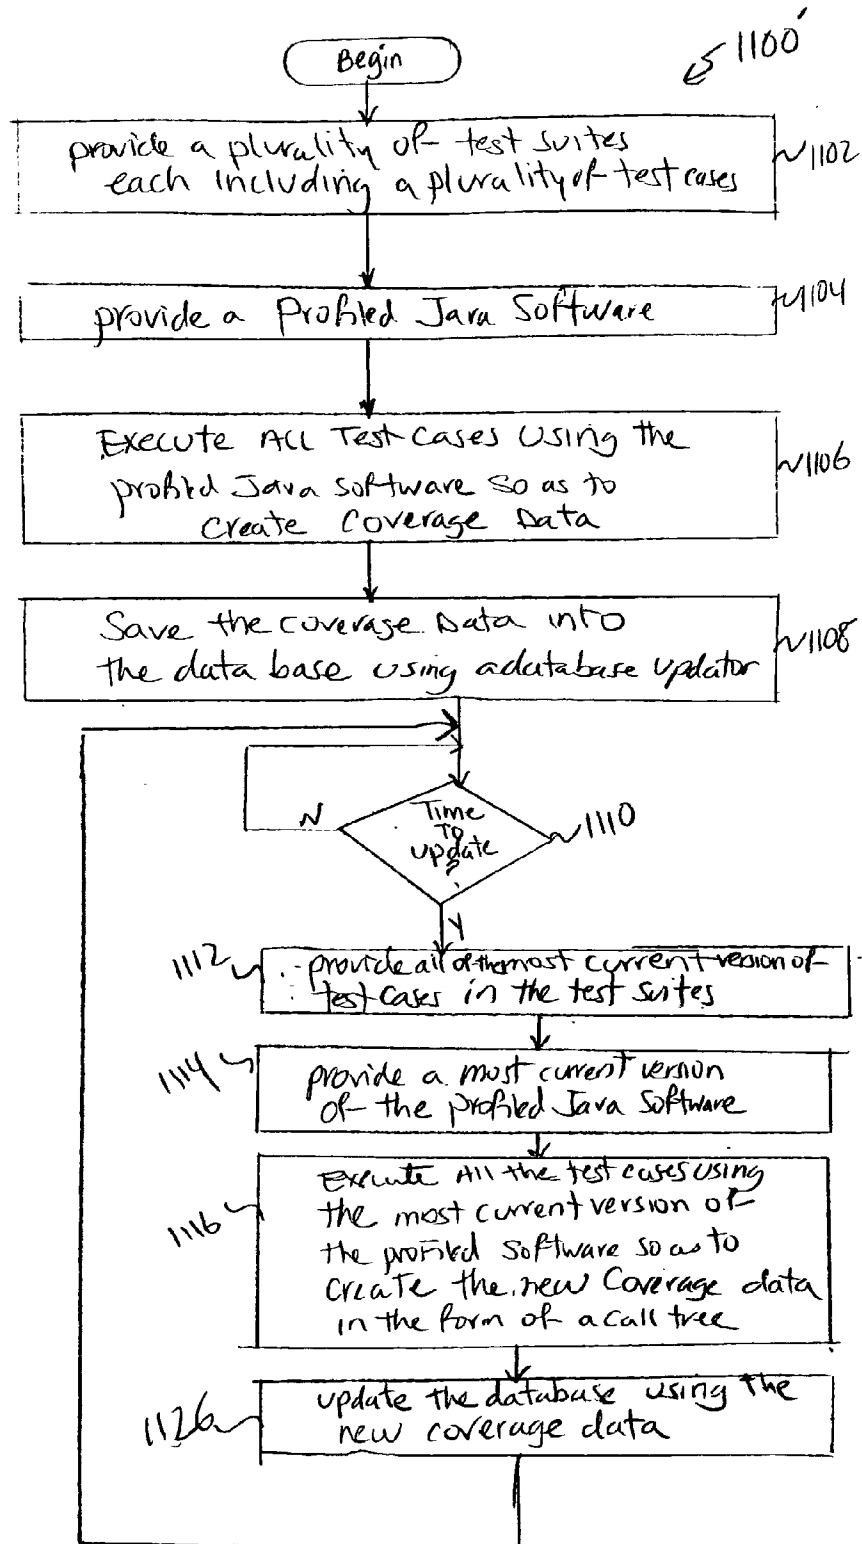 Begin
1100'
provide a plurality of test suites
each including a plurality of test cases
1102
provide a Profiled Java Software
1104
Execute All Test Cases Using the
profiled Java software so as to
Create Coverage Data
1106
Save the coverage Data into
the data base using a database updator
1108
N
Time
To
update
?
1110
Y
1112
provide all of the most current version of
test cases in the test suites
1114
provide a most current version
of the profiled Java Software
1116
Execute All the test cases using
the most current version of
the profiled software so as to
create the new Coverage data
in the form of a call tree
1126
update the database using the
new coverage data